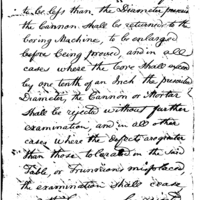 to be less than the Diameter, 
the Cannon shall be returned to the
Boring Machine, to be enlarged
before being proved, and in all
cases where the Bore shall exceed
by one tenth of an Inch the prescribed
Diameter, the Cannon or Mortar
shall be rejected without further
examination, and in all other
cases where the defects are greater
than those tolerated in the said
Table, or Trunnions misplaced
the examination shall cease